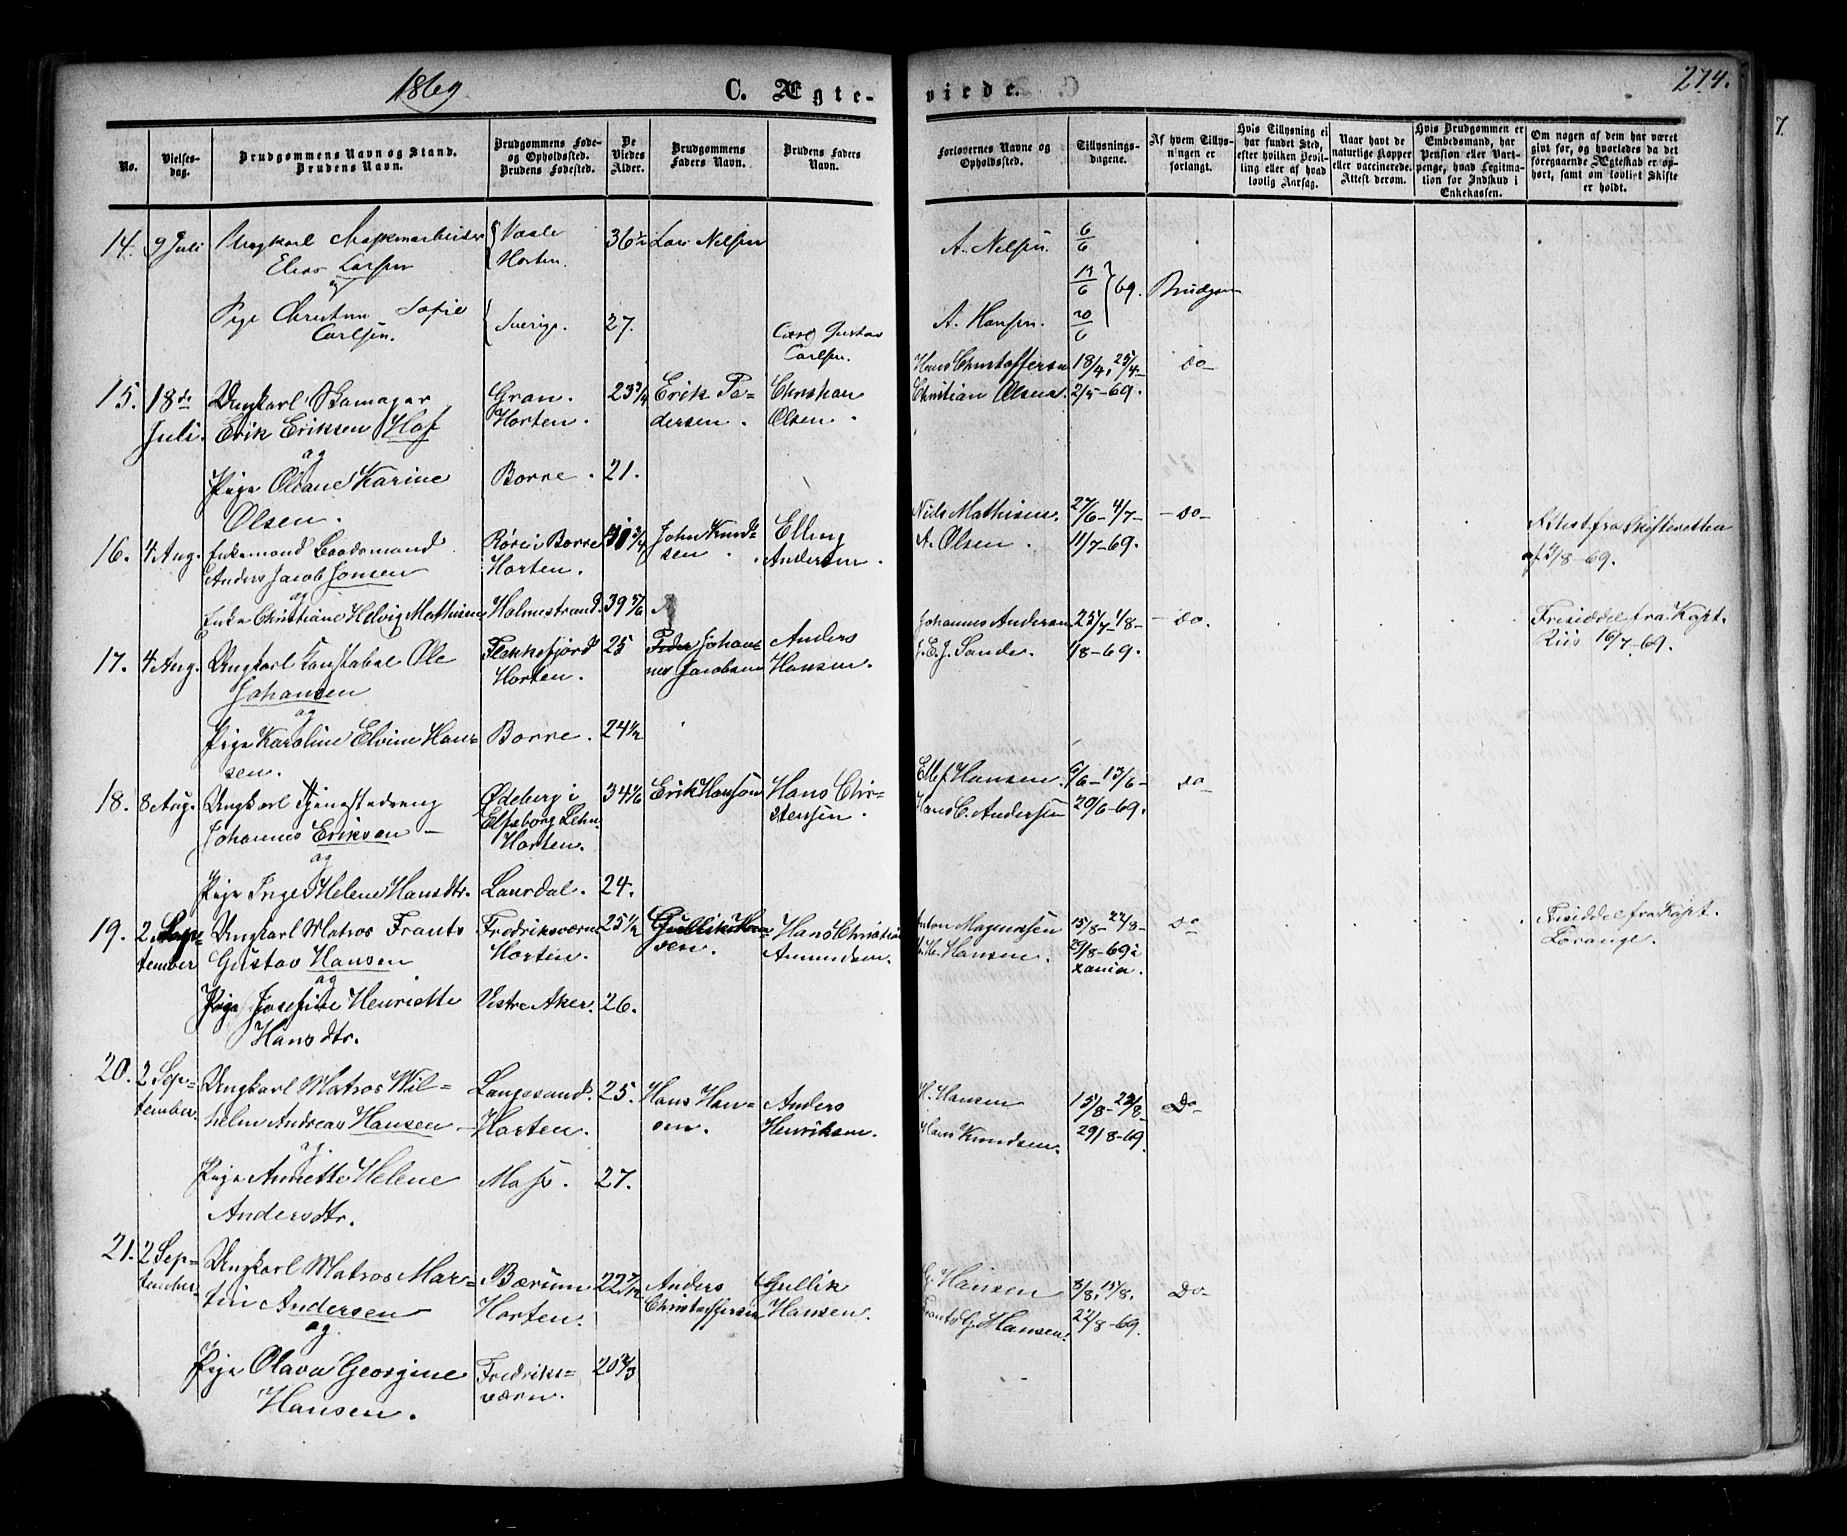 1869
C. Ægte-
viede.
274.
7.
No.
Vielses-
dag.
Brudgommens Navn og Stand.
Brudens Navn.
Brudgommens Føde-
og Opholdssted.
Brudens Fødested.
De
Viedes
Alder.
Brudgommens
Faders Navn.
Brudens Faders
Navn.
Forlovernes Navne og
Opholdssted.
Tillysnings-
dagene.
Af hvem Tillys-
ningen er
forlangt.
Hvis Tillysning ei
har fundet Sted,
efter hvilken Bevil-
ling eller af hvad
lovlig Aarsag.
Naar havt de
naturlige Kopper
eller vaccinerede.
Attest derom.
Hvis Brudgommen er
Embedsmand, har
Pension eller Vart-
penge, hvad Legitma-
tion for Indskud i
Enkekassen.
Om nogen af dem har været
gift før, og hvorledes da det
foregaaende Ægteskab er op-
hørt, samt om lovligt Skifte
er holdt.
14. 9 Juli Ungkarl Maskinarbeider Vaale 36½ Lars Nilsen A. Nilsen 6/6
Elias Larsen Horten.
og 13/6 69. Brudgom
Pige Christine Sofie Sverige. 27. Carl Gustav A. Hansen. 20/6
Carlsen. Carlsen.
15. 18de Ungkarl Skomager Gran. 23¾ Erik Pe- Christian Hans Christoffersen 18/4, 25/4- do-
Juli. Erik Eriksen Hof Horten. dersen. Olsen. Christian Olsen. 2/5-69.
og
Pige Oliane Karine Borre. 21.
Olsen.
16. 4 Aug. Enkemand Baadsmand Røre i Borre John Knud- Elling Niels Mathisen. 27/6-4/7- -do- Attest fra Skifteretten
Anders Jacob Jonsen Horten. sen. Andersen. A. Olsen. 11/7-69. af 2/8-69.
og
Enke Christiane Helvig Mathisen Holmestrand. 39 5/6
17. 4 Aug. Ungkarl Konstabel Ole Flekkefjord 25 Peder Johan- Anders Johannes Andersen 25/7-1/8- -do. Friseddel fra Kapt.
Johansen Horten. nes Jacobsen Hansen. J.E.J. Sande. 18-69. Riis 16/7-69.
og
Pige Karoline Elvine Han- Borre. 24½
sen.
18. 8 Aug. Ungkarl Tjenestedreng Ødeborg i 34 Erik Hanson Hans Chri- Ellef Hansen. 6/6-13/6- do-
Johannes Eriksen - Elfsborg Lehn. stensen. Hans C. Andersen 20/6-69.
og Horten.
Pige Inger Helene Hansdtr. Laurdal. 24.
19. 2 Sep- Ungkarl Matros Frants Fredriksværn 25½ Gullik Han- Hans Christian Anton Magnussen 15/8-22/8- Do Friseddel fra Kapt.
tember Gustav Hansen Horten. sen. Amundsen. H. Hansen. 29/8-69 i Lorange.
og xania.
Pige Josefine Henriette Vestre Aker. 26.
Hansdtr.
20. 2 Sep- Ungkarl Matros Wil- Langesund. 25. Hans Han- Anders H. Hansen 15/8-22/8- Do
tember. helm Andreas Hansen - Horten. sen. Henriksen. Hans Knudsen. 29/8-69.
og
Pige Annette Helene 27.
Andersdtr.
21. 2 Sep- Ungkarl Matros Mar- Bærum 22 Anders Gullik G. Hansen 8/8, 15/8. Do-
tember. tin Andersen Horten. Christoffersen Hansen. Frants G. Hansen. 22/8-69.
og
Pige Olava Georgine Fredriks- 20 2/3
Hansen. værn.